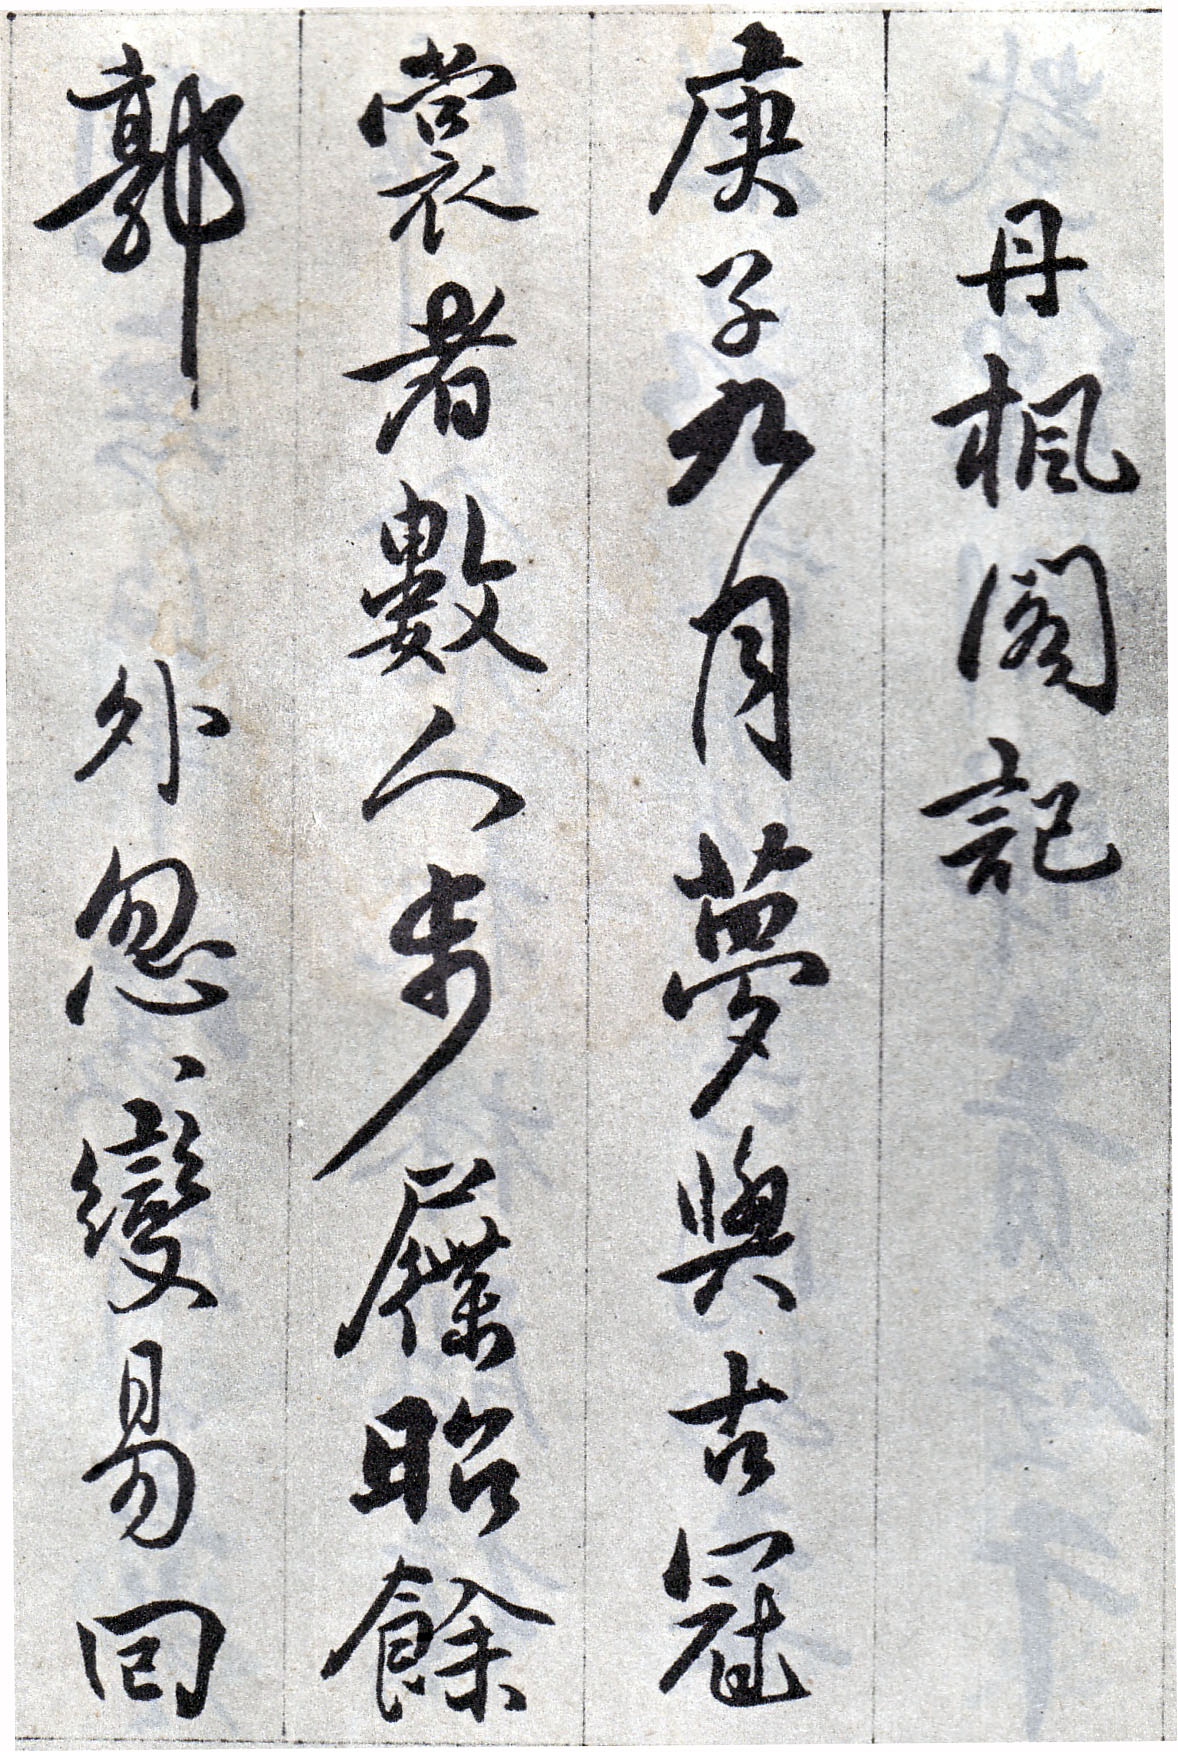 丹楓閣記
庚子九月夢與古冠
裳者數人步屧昭餘
郭外忽、變易回